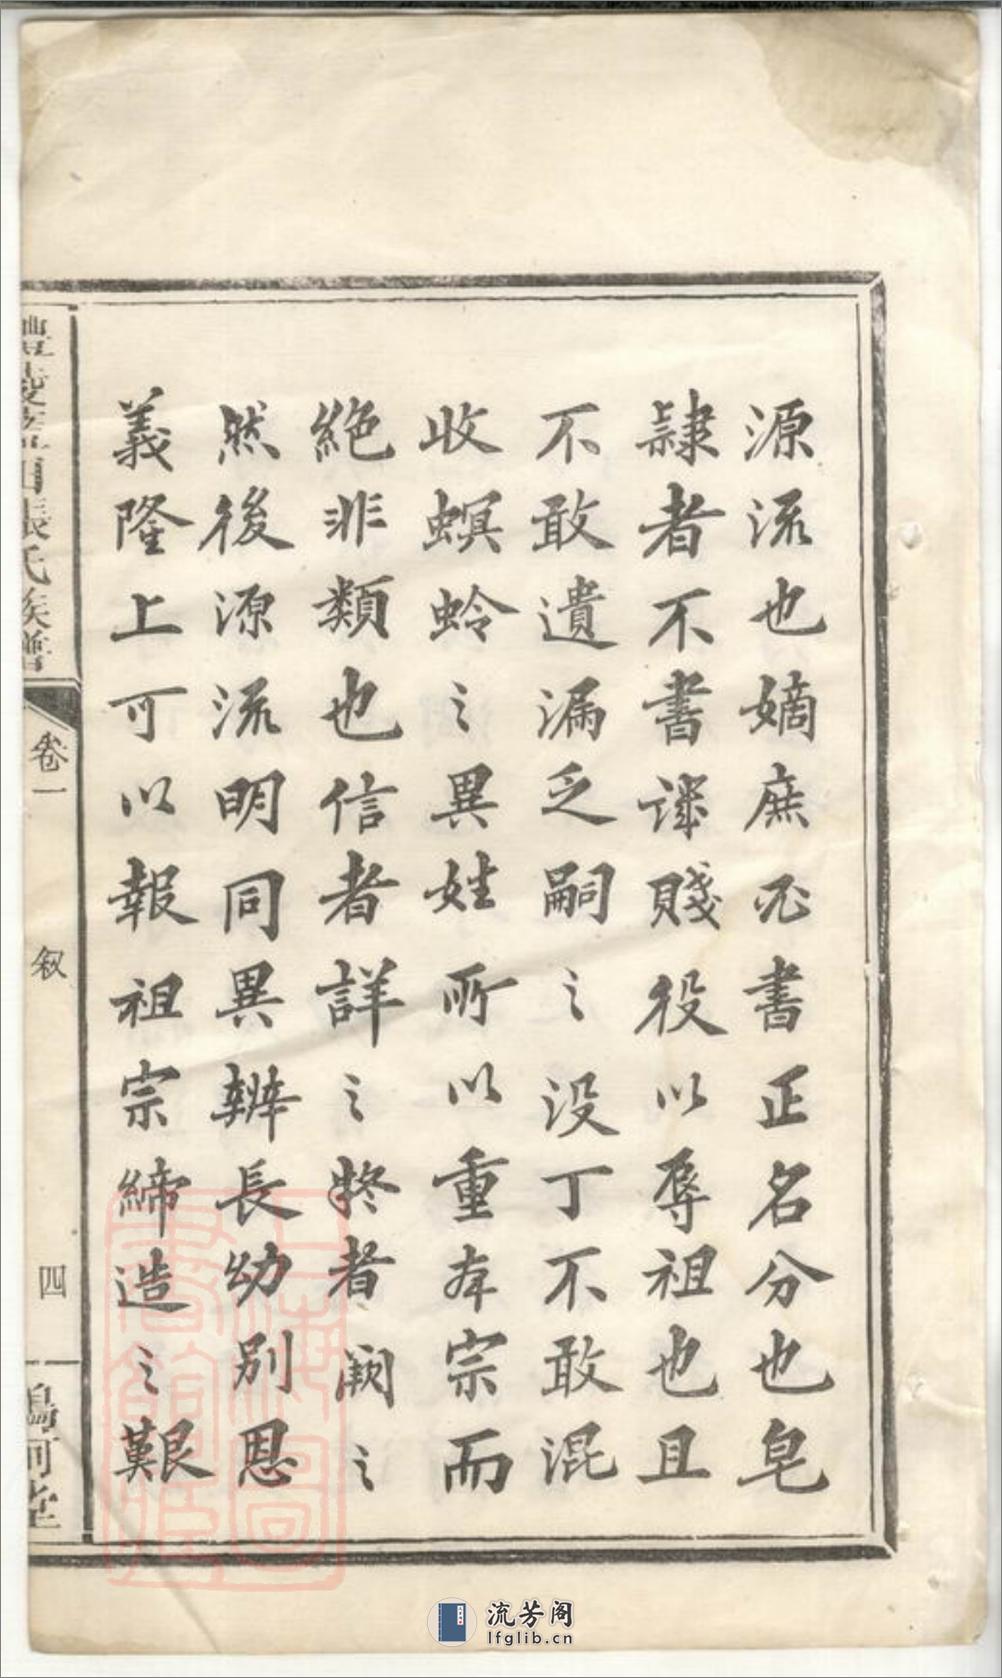 源流也嫡庶必書正名分也皂
隷者不書賤役以辱祖也且
不敢遺漏乏嗣之没丁不敢混
收螟蛉之異姓所以重本宗而
絶非類也信者詳之疑者阙之
然後源流明同異辨長幼別恩
義隆上可以報祖宗締造之艱
張氏族譜
卷一
叙
四
鳴珂堂
上海圖書館藏
流芳阁
lfglib.cn